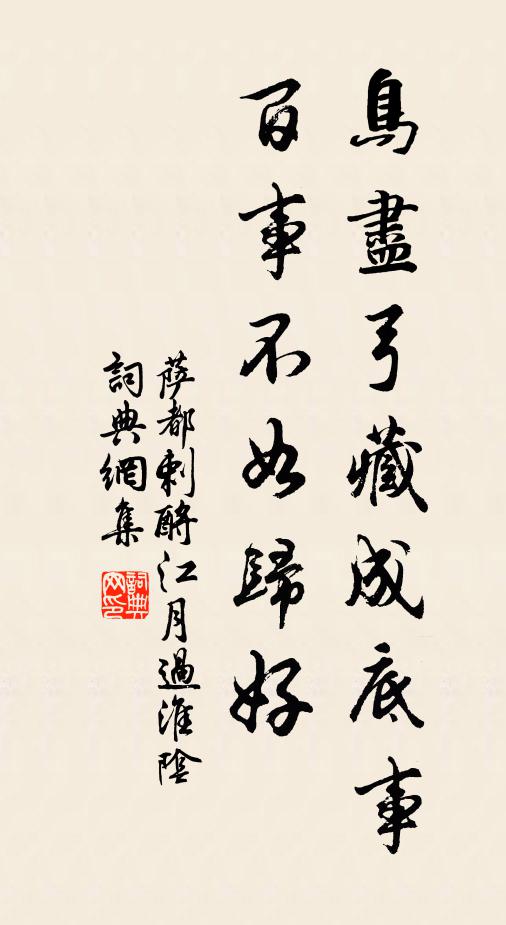 鳥盡弓藏成底事
百事不如歸好
薩都剌酹江月過淮陰
詞典網集
詞典网印